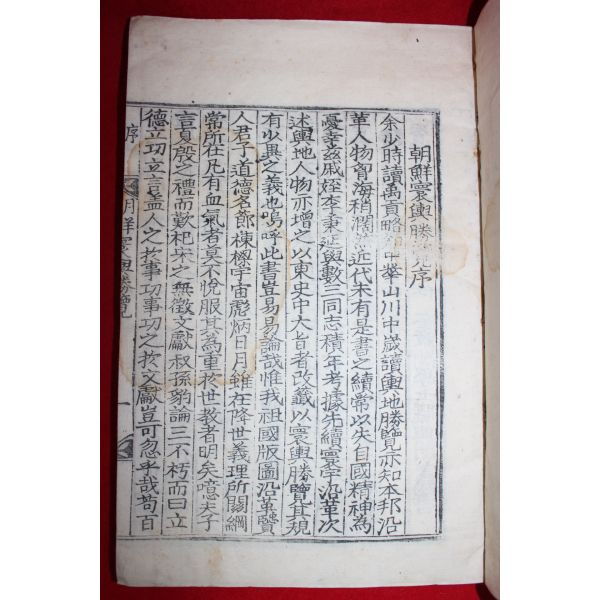 朝鮮寰輿勝覽序
余少時讀禹貢略中華山川中歲讀輿地勝覽亦知本邦沿
革人物智海稍濶然近代未有是書之續常以失自國精神爲
憂幸玆戚姪李秉延與數三同志積年考據先續寰宇沿革次
述輿地人物亦增之以東史中大旨者改籤以寰輿勝覽其規
有少異之義也嗚呼此書豈易易論哉惟我祖國版圖沿革賢
人君子道德名節棟樑宇宙彪炳日月雖在降世義理所關綱
常所在凡有血氣者莫不悅服其爲重於世敎者明矣噫夫子
言夏殷之禮而歎杞宋之無徵文獻叔孫豹論三不朽而曰立
德立功立言盖人之於事功事功之於文獻豈可忽乎哉苟百
序
朝鮮寰輿勝覽
一